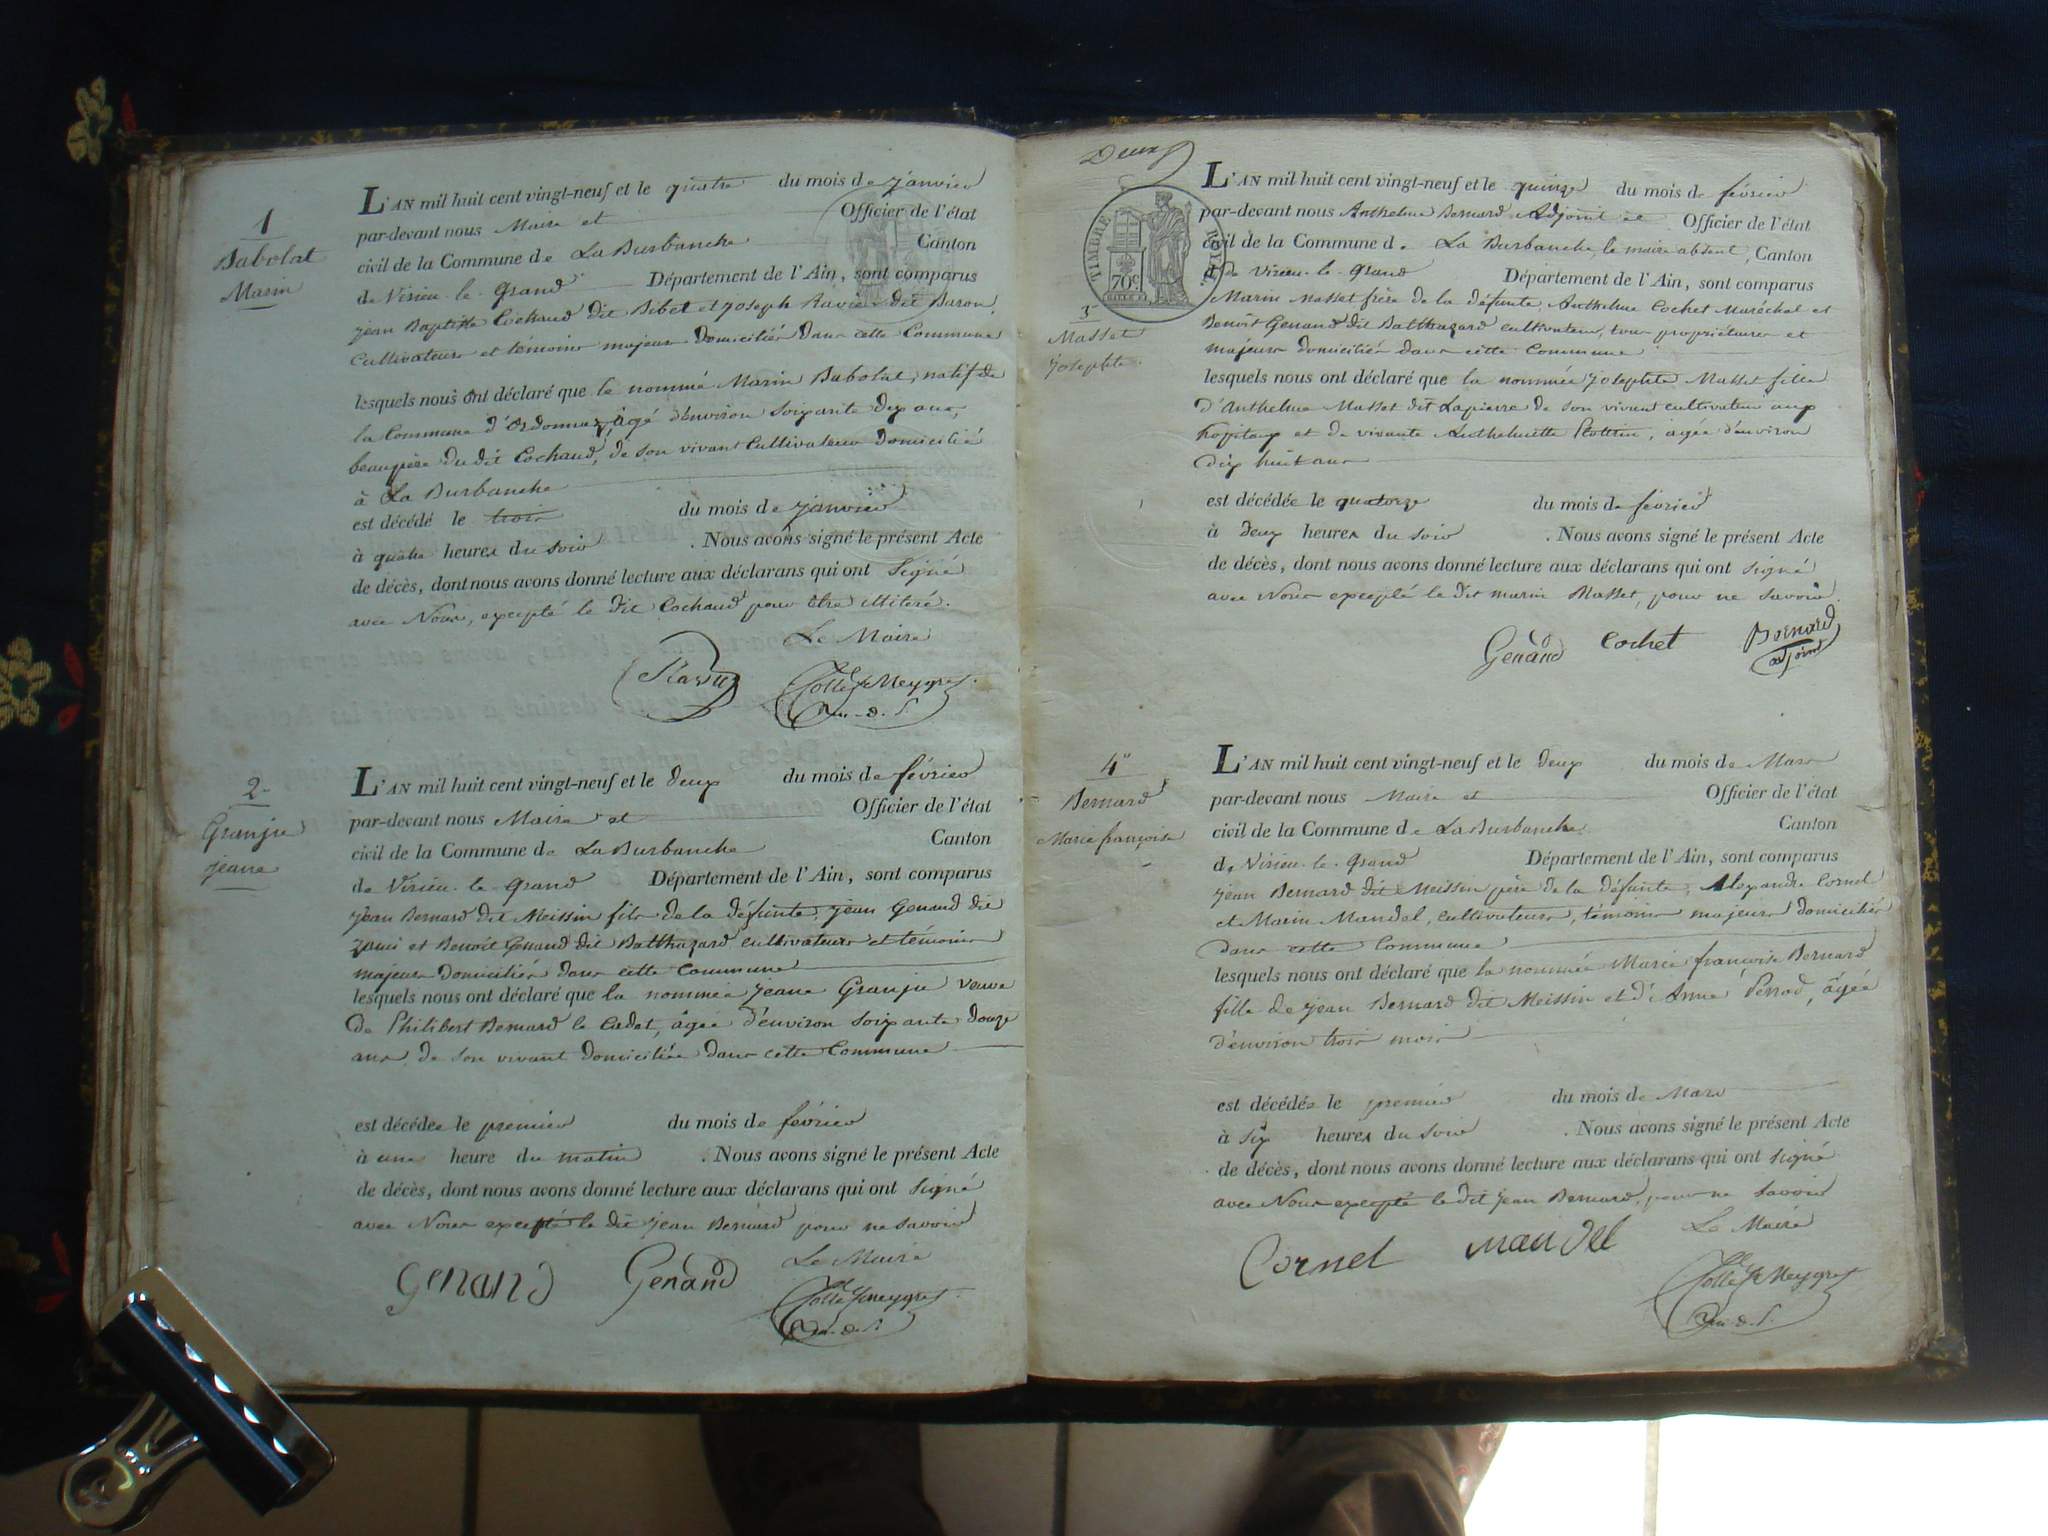 1
Babolat
Marin
L'AN mil huit cent vingt-neuf et le quatre du mois de janvier
par-devant nous Maire et Officier de l'état
civil de la Commune de La Burbanche Canton
de Virieu-le-Grand Département de l'Ain, sont comparus
jean Baptiste Cochaud dit Bibet et joseph Ravier dit Buron,
cultivateurs et témoins majeurs domiciliés dans cette Commune
lesquels nous ont déclaré que le nommé Marin Babolat, natif de
la Commune d'Ordonnaz, âgé d'environ soixante dix ans,
beaupère du dit Cochaud, de son vivant cultivateur domicilié
à La Burbanche
est décédé le trois du mois de janvier
à quatre heures du soir . Nous avons signé le présent Acte
de décès, dont nous avons donné lecture aux déclarans qui ont signé
avec Nous, excepté le dit Cochaud pour être illiteré.
Le Maire
2
Granju
jeane
L'AN mil huit cent vingt-neuf et le deux du mois de février
par-devant nous Maire et Officier de l'état
civil de la Commune de La Burbanche Canton
de Virieu-le-Grand Département de l'Ain, sont comparus
jean Bernard dit Meissin fils de la défunte, jean Genaud dit
et Benoît Genaud dit Balthazard cultivateurs et témoins
majeurs domiciliés dans cette Commune
lesquels nous ont déclaré que la nommée jeane Granju veuve
de Philibert Bernard le Cadet, âgée d'environ soixante douze
ans de son vivant domiciliée dans cette Commune
est décédée le premier du mois de février
à une heure du matin . Nous avons signé le présent Acte
de décès, dont nous avons donné lecture aux déclarans qui ont signé
avec Nous excepté le dit jean Bernard pour ne savoir
Le Maire
Genand Genand
Deux
TIMBRE ROYAL
70c
3
Masset
josephte
L'AN mil huit cent vingt-neuf et le quinze du mois de février
par-devant nous Anthelme Bernard Adjoint et Officier de l'état
civil de la Commune de La Burbanche, le maire absent, Canton
de Virieu-le-Grand Département de l'Ain, sont comparus
Marin Masset frère de la défunte, Anthelme Cochet Maréchal et
Benoît Genaud dit Balthazard cultivateur, tous propriétaires et
majeurs domiciliés dans cette Commune
lesquels nous ont déclaré que la nommée josephte Masset fille
d'Anthelme Masset dit Lapierre de son vivant cultivateur aux
hopitaux et de vivante Anthelmette, âgée d'environ
dix huit ans
est décédée le quatorze du mois de février
à deux heures du soir . Nous avons signé le présent Acte
de décès, dont nous avons donné lecture aux déclarans qui ont signé
avec Nous excepté le dit marin Masset, pour ne savoir.
Genand Cochet Bernard
adjoint
4
Bernard
Marie françoise
L'AN mil huit cent vingt-neuf et le deux du mois de Mars
par-devant nous Maire et Officier de l'état
civil de la Commune de La Burbanche Canton
de Virieu-le-Grand Département de l'Ain, sont comparus
jean Bernard dit Meissin père de la défunte, Alexandre Cornel
et Marin Mandel, cultivateurs, témoins majeurs domiciliés
dans cette Commune
lesquels nous ont déclaré que la nommée Marie françoise Bernard
fille de jean Bernard dit Meissin et d'Anne Perrod, âgée
d'environ trois mois
est décédée le premier du mois de Mars
à six heures du soir . Nous avons signé le présent Acte
de décès, dont nous avons donné lecture aux déclarans qui ont signé
avec Nous excepté le dit jean Bernard, pour ne savoir
Le Maire
Cornel mandel